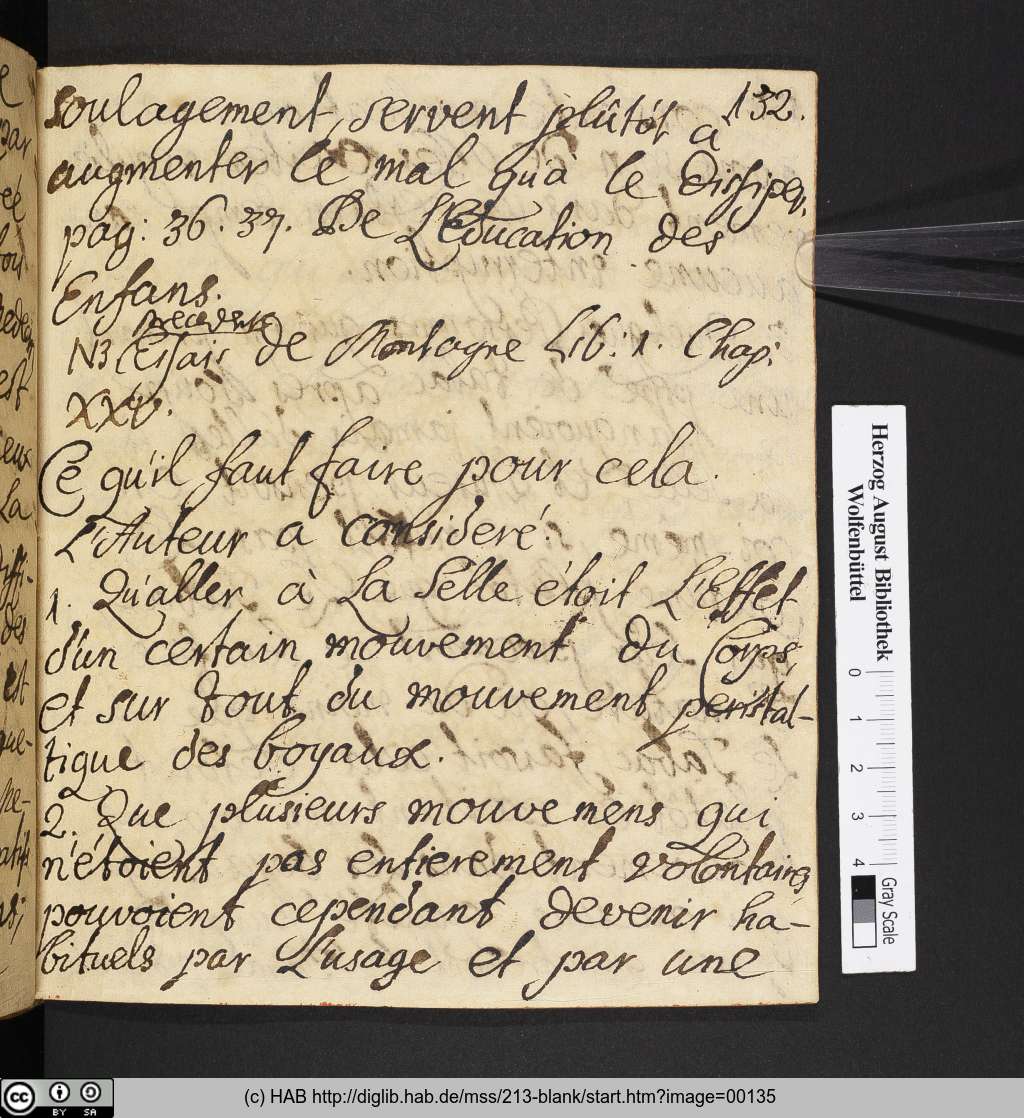 132.
soulagement, servent plûtôt à
augmenter le mal qu'à le dissiper,
pag: 36. 37. De L'Education des
Enfans.
precedente
NB Essais de Montagne Lib: 1. Chap:
XXV.
Ce qu'il faut faire pour cela.
L'Auteur a consideré:
1. Qu'aller à La Selle étoit L'Effet
d'un certain mouvement du Corps,
et sur tout du mouvement peristal-
tique des boyaux.
2. Que plusieurs mouvemens qui
n'étoient pas entierement volontaires,
pouvoient cependant devenir ha-
bituels par L'usage et par une
Herzog August Bibliothek
Wolfenbüttel
0 1 2 3 4
Gray Scale
cc BY SA
(c) HAB http://diglib.hab.de/mss/213-blank/start.htm?image=00135